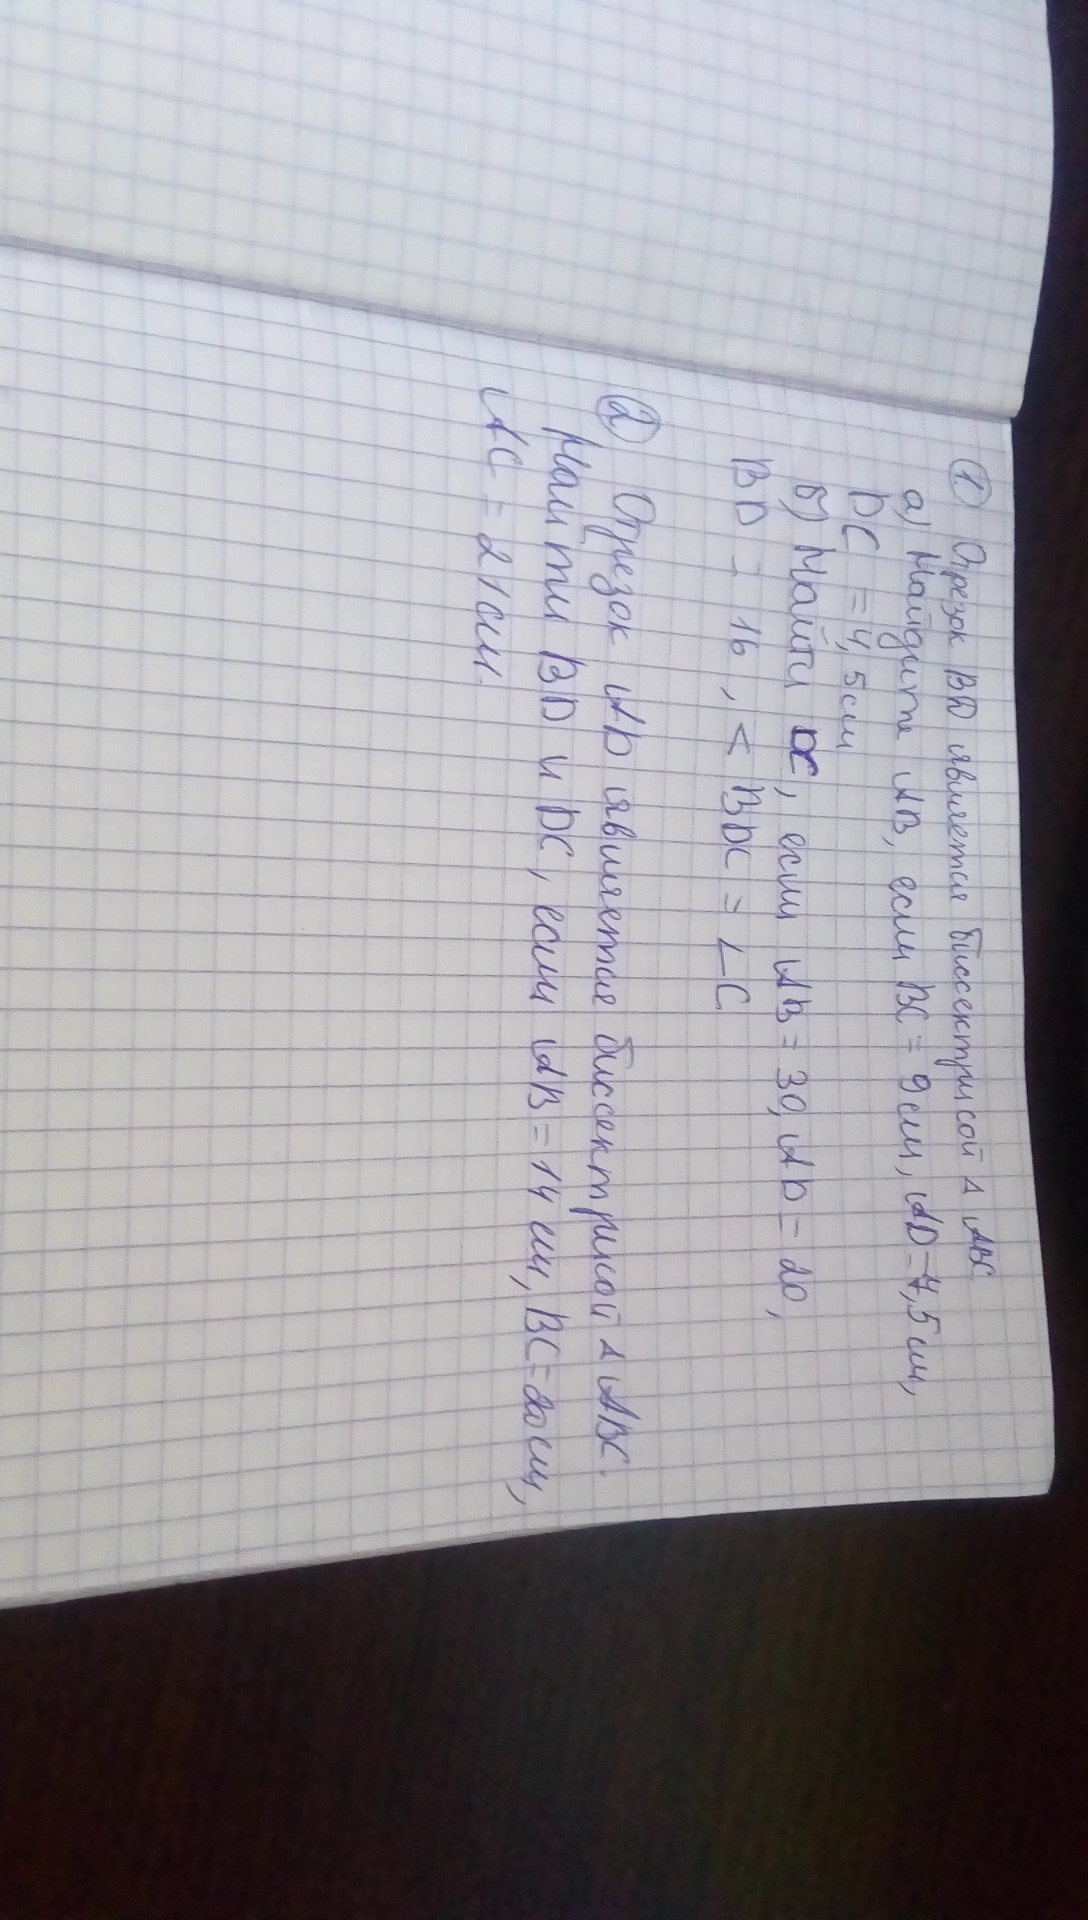 ① Отрезок BD является биссектрисой Δ ABC
а) Найдите AB, если BC = 9 см, AD = 7,5 см,
DC = 4,5 см
б) Найти DC, если AB = 30, AD = 20,
BD = 16, < BDC = ∠C
② Отрезок AD является биссектрисой Δ ABC.
Найти BD и DC, если AB = 14 см, BC = 20 см,
AC = 21 см.